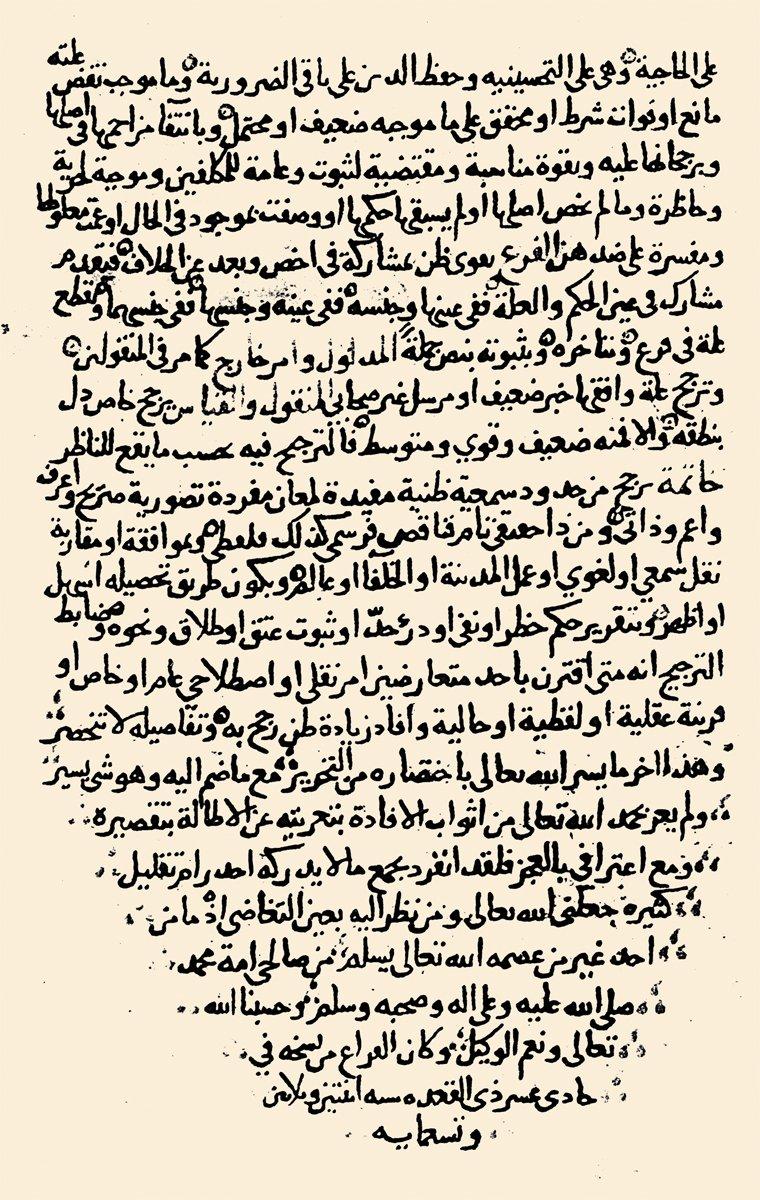 على الحاجية وهي على التحسينيه وحفظ الدين على باقي الضرورية وما موجب نقض علته
مانع او فوات شرط او محقق على ما موجبه ضعيف او محتمل وبانتفا مزاحمها في اصلها
وبرجحانها عليه وبقوة مناسبة ومقتضية لثبوت وعامة للمكلفين وموجبة لحرية
وحاظرة وما لم يخص اصلها او لم يسبقها حكمها او وصفت بموجود في الحال او عمت معلولها
ومفسرة على ضد هن الفرع بقوى ظن بمشاركة في اخص وبعد عن الخلاف فيقدم
مشارك في عين الحكم والعلة ففي عينها وجنسه ففي عينه وجنسها ففي جنسهما وبقطع
علة في فرع وبتاخره وبثبوته بنص جملة المدلول وامر خارج كما مر في المنقولين
وترجح علة وافقها خبر ضعيف او مرسل غير صحابي المنقول والقياس يرجح خاص دل
بنطقه والا فمنه ضعيف وقوي ومتوسط فالترجيح فيه بحسب ما يقع للناظر
خاتمة يرجح من حدود سمعية ظنية مفيدة لمعان مفردة تصورية صريح واعرف
واعم وذاتي ومن ذا حقيقي تام فناقص فرسمي كذلك فلفظي وبموافقة او مقاربة
نقل سمعي او لغوي او عمل المدينة او الخلفا او عالم وبكون طريق تحصيله اسهل
او اظهر وبتقرير حكم حظر او نفي او درء حدّ او ثبوت عتق او طلاق ونحوه وضابط
الترجيح انه متى اقترن باحد متعارضين امر نقلي او اصطلاحي عام او خاص او
قرينة عقلية او لفظية او حالية وافاد زيادة ظن رجح به وتفاصيله لا تنحصر
وهذا اخر ما يسر الله تعالى باختصاره من التحرير مع ما ضم اليه وهو شي يسير
ولم يعر بحمد الله تعالى من اثواب الافادة بتعريته عن الاطالة بتقصيره
ومع اعترافي بالعجز فلقد انفرد بجمع ما لا يدركه احد رام تقليل
كثيره جعلني الله تعالى ومن نظر اليه بعين التغاضي اذ ما من
احد غير من عصمه الله تعالى يسلم من صالحي امة محمد
صلى الله عليه وعلى اله وصحبه وسلم وحسبنا الله
تعالى ونعم الوكيل وكان الفراغ من نسخه في
حادي عشر ذي القعده سنه اثنتين وثلاثين
وتسعمايه